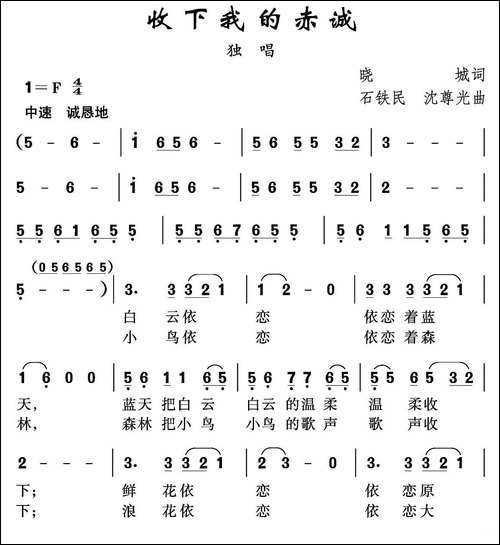 收下我的赤诚
独 唱
1=F 4/4
晓 城词
石铁民 沈尊光曲
中速 诚恳地
(5 - 6 - | 1 6 5 6 5 - | 5 6 5 6 5 5 3 2 | 3 - - - |
5 - 6 - | 1 6 5 6 5 - | 5 6 5 6 5 5 3 2 | 2 - - - |
5 5 6 1 6 5 5 | 5 5 6 7 6 5 5 | 5 6 1 1 5 6 5 |
(0 5 6 5 6 5)
5 - - -) | 3. 3 3 2 1 | 1 2 - 0 | 3. 3 3 2 1 |
白 云依 恋 依恋着蓝
小 鸟依 恋 依恋着森
1 6 0 0 | 5 6 1 1 6 5 | 5 6 7 7 6 5 | 5 6 5 3 2 |
天, 蓝天把白 云 白云的温 柔 温 柔收
林, 森林把小 鸟 小鸟的歌 声 歌 声收
2 - - 0 | 3. 3 3 2 1 | 2 3 - 0 | 3. 3 3 2 1 |
下; 鲜 花依 恋 依 恋原
下; 浪 花依 恋 依 恋大